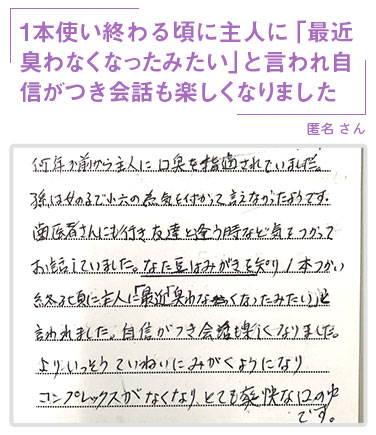 1本使い終わる頃に主人に「最近
臭わなくなったみたい」と言われ自
信がつき会話も楽しくなりました
匿名 さん
何年か前から主人に口臭を指適されていました。
孫は女の子で小六の為気を付かって言えなかったようです。
歯医者さんにも行き、友達と逢う時など気をつかって
お話していました。なた豆はみがきを知り1本つかい
終る頃に主人に「最近臭わなくなったみたい」と
言われました。自信がつき会話も楽しくなりました。
よりいっそうていねいにみがくようになり
コンプレックスがなくなり、とても爽快な口の中
です。